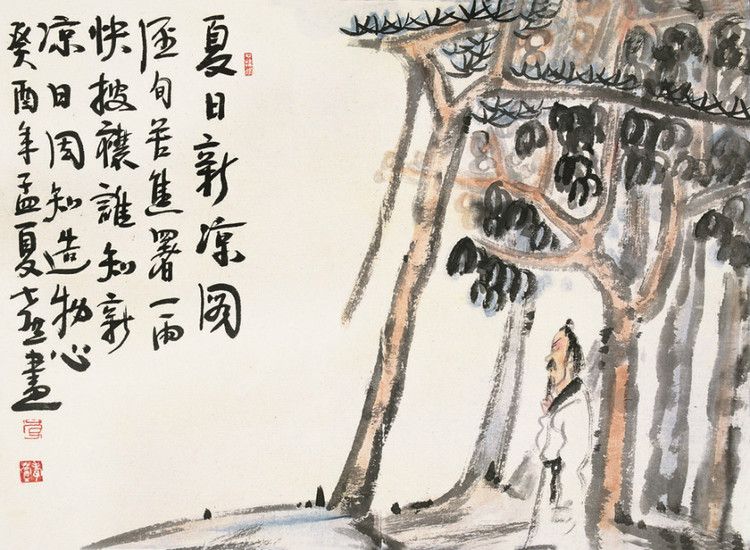 夏日新凉图
旬苦焦暑一雨
快披襟誰知新
凉日因知造物心
癸酉年孟夏畫